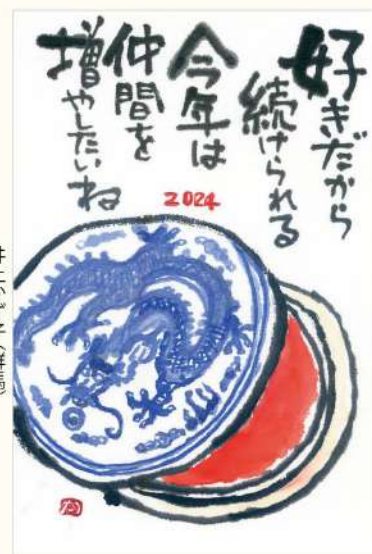 好きだから
続けられる
今年は
仲間を
増やしたいね
2024